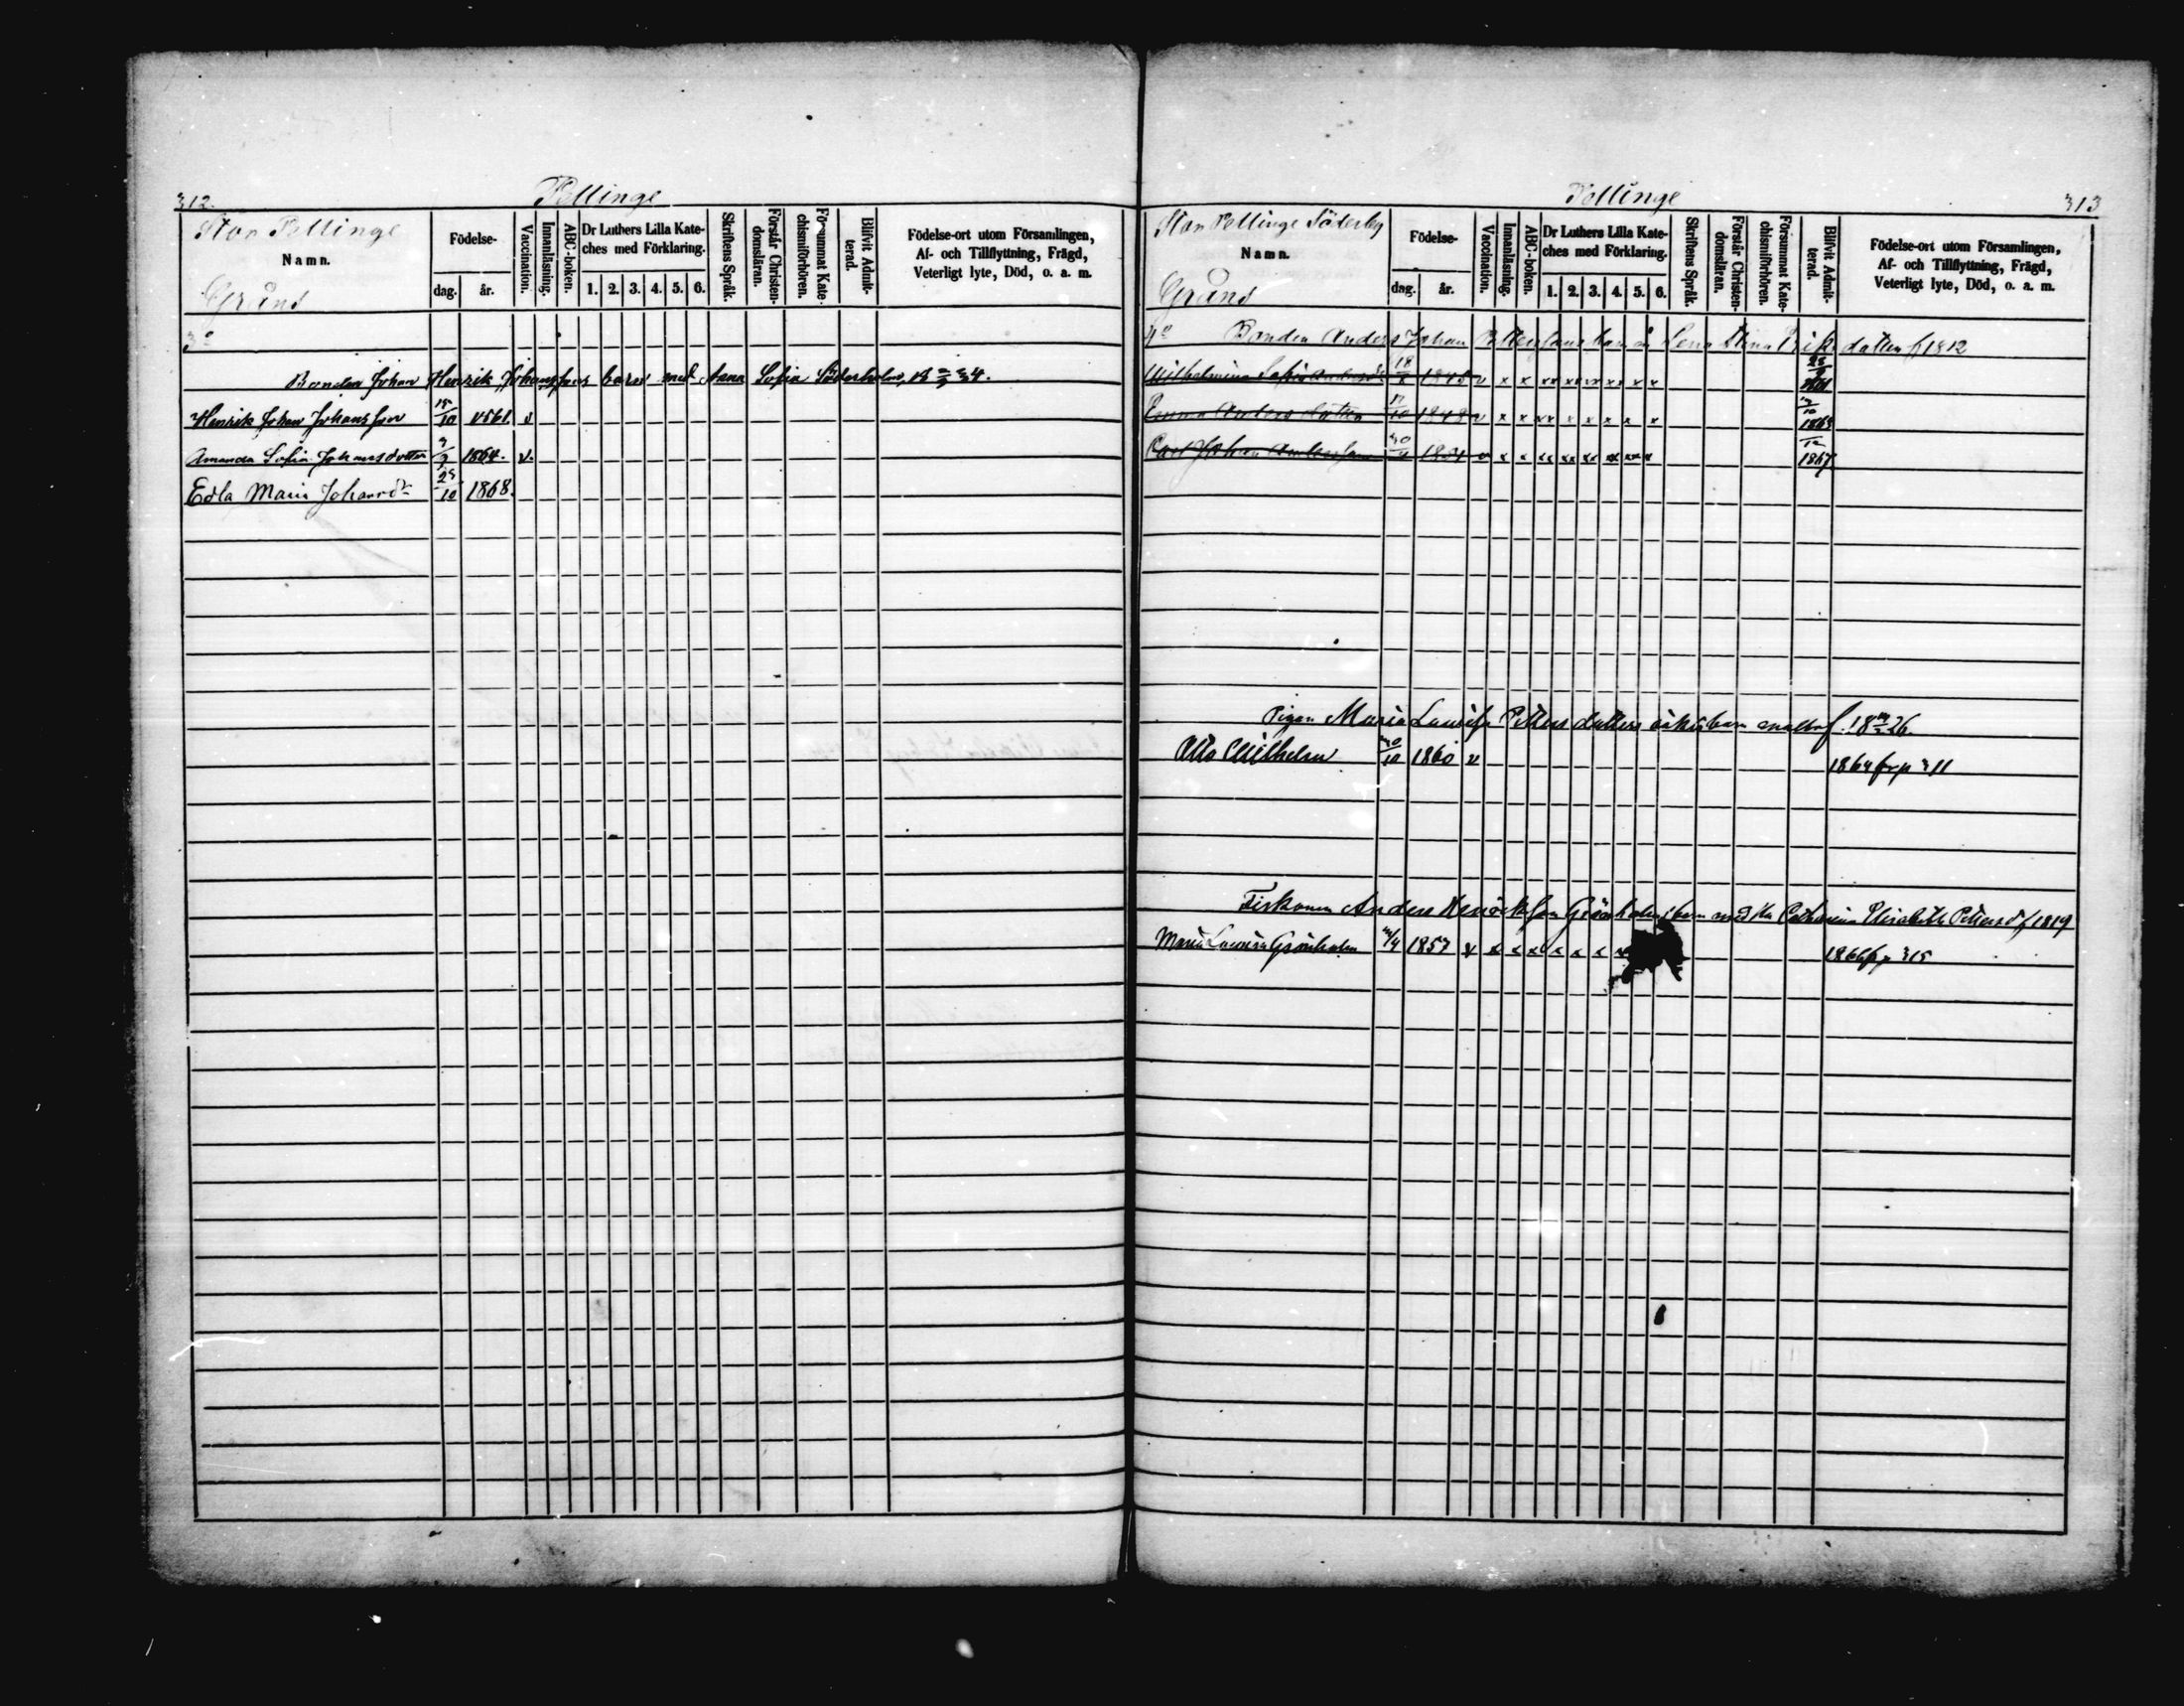 312.
Pellinge
Stor Pellinge
Namn.
Gråns
Födelse-
dag. år.
Vaccination.
Innanläsning.
ABC-boken.
Dr Luthers Lilla Kate-
ches med Förklaring.
1. 2. 3. 4. 5. 6.
Skriftens Språk.
Förstår Christen-
domsläran.
Försummat Kate-
chismiförhören.
Blifvit Admit-
terad.
Födelse-ort utom Församlingen,
Af- och Tillflyttning, Frägd,
Veterligt lyte, Död, o. a. m.
3o
Bonden Johan Henrik Johansson barn med Anna Sofia Söderholm, 18 34.
Henrik Johan Johansson 15/10 1861. v
Amanda Sofia Johansdotter 1864. v.
Edla Maria Johansdr 25/10 1868.
Pellinge
313
Stor Pellinge Söderby
Namn.
Gråns
Födelse-
dag. år.
Vaccination.
Innanläsning.
ABC-boken.
Dr Luthers Lilla Kate-
ches med Förklaring.
1. 2. 3. 4. 5. 6.
Skriftens Språk.
Förstår Christen-
domsläran.
Försummat Kate-
chismiförhören.
Blifvit Admit-
terad.
Födelse-ort utom Församlingen,
Af- och Tillflyttning, Frägd,
Veterligt lyte, Död, o. a. m.
4o Bonden Anders Johan Pettersons barn Lena Stina Eriksdotter f 1812
Wilhelmina Sofia Andersdr 18 1845 v x x xx xx xx xx x x
Emma Andersdotter 17/10 1848 v x x xx x x x x x
Carl Johan Andersson 1851 v x x xx xx xx xx xx x 1867
Pigan Maria Lovisa Pettersdotters oäkta barn f. 18 26
Otto Wilhelm 10 1860 v 1864 fr p 311
Fiskaren Anders Henriksson Grönholms barn med Catharina Elisabeth Pettersdr f 1819
Maria Lovisa Grönholm 1857 v x x x x x x 1866 fr p 315